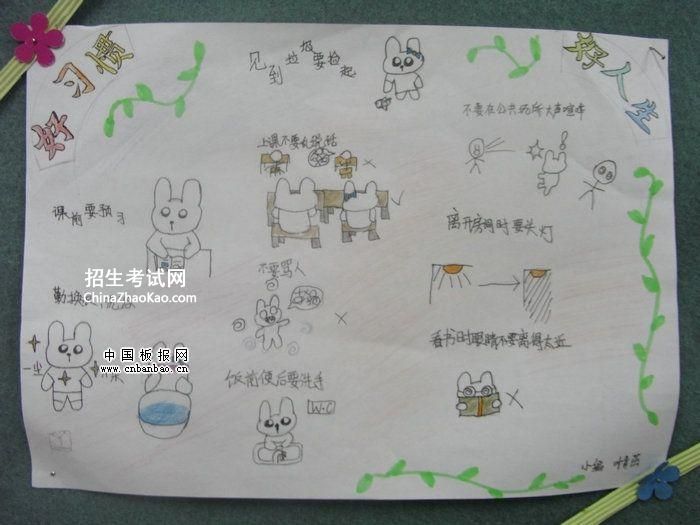 好习惯
好人生
见到垃圾要捡起
不要在公共场所大声喧哗
上课不要乱说话
课前要预习
离开房间时要关灯
不要骂人
招生考试网
ChinaZhaoKao.com
勤换
看书时眼睛不要离得太近
中国板报网
www.cnbanbao.cn
饭前便后要洗手
W·C
小编